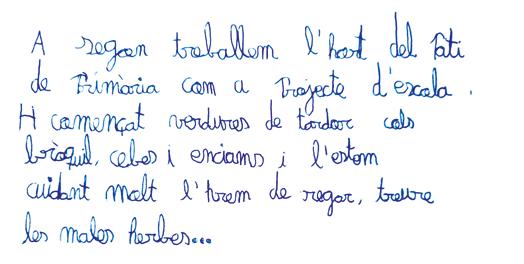 A segon treballem l'hort del Pati
de Primària com a Projecte d'escola.
H començat verdures de tardor cols
bròquil, cebes i enciams i l'estem
cuidant molt l'hrem de regar, treure
les males herbes...